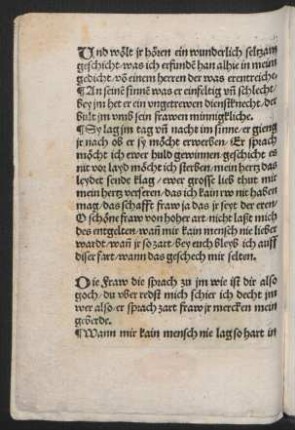 Und wölt jr hören ein wunderlich seltzam
geschicht/was ich erfundē han alhie in mein
gedicht/vō einem herren der was erentreiche.
¶An seinē sinnē was er einfeltig vñ schlecht/
bey jm het er ein vngetrewen dienstknecht/der
bult jm vmb sein frawen minnigkliche.
¶Sy lag jm tag vñ nacht im sinne/er gieng
jr nach ob er sy möcht erwerben/Er sprach
möcht ich ewer huld gewinnen/geschicht es
nit vor layd möcht ich sterben/mein hertz das
leydet sende klag/ewer grosse lieb thut mir
mein hertz verseren/das ich kain rw nit haben
mag/das schafft fraw ja das jr seyt der eren/
O schöne fraw von hoher art/nicht laßt mich
des entgelten/wañ mir kain mensch nie lieber
wardt/wañ jr so zart/bey euch bleyb ich auff
diser fart/wann das geschech mir selten.
Die Fraw die sprach zu jm wie ist dir also
goch/du vber redst mich schier ich decht jm
wer also/er sprach zart fraw jr mercken mein
geberde.
¶Wann mir kain mensch nie lag so hart in